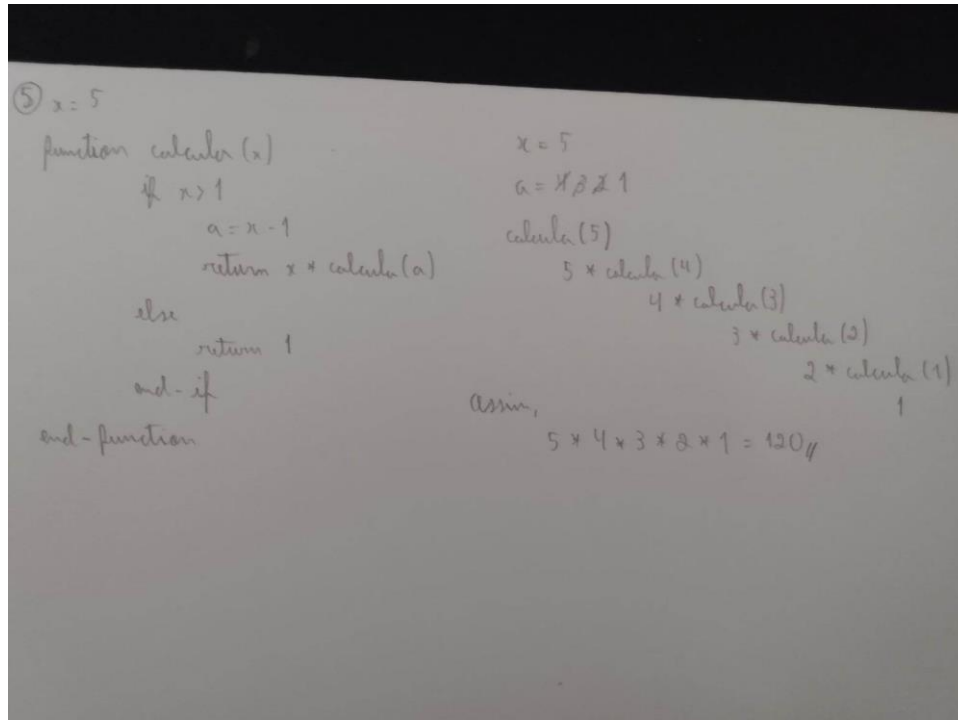 5 x = 5
function calcular (x)
if x > 1
a = x - 1
return x * calcula (a)
else
return 1
end-if
end-function
x = 5
a = 4 3 2 1
calcula (5)
5 * calcula (4)
4 * calcula (3)
3 * calcula (2)
2 * calcula (1)
1
assim,
5 * 4 * 3 * 2 * 1 = 120//